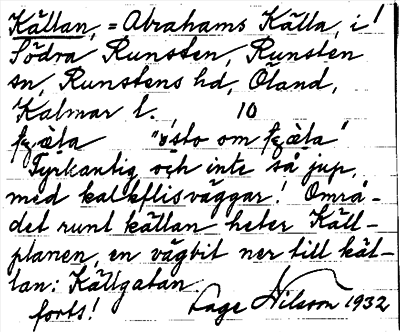 Källan, = Abrahams Källa, i
Södra Runsten, Runsten
sn, Runstens hd, Öland,
Kalmar l., 10
"östo om
Fyrkantig och inte så jup,
med kalkflisväggar! Områ-
det runt källan heter Käll-
planen, en vägbit ner till käl-
lan: Källgatan.
forts! Åage Nilson 1932